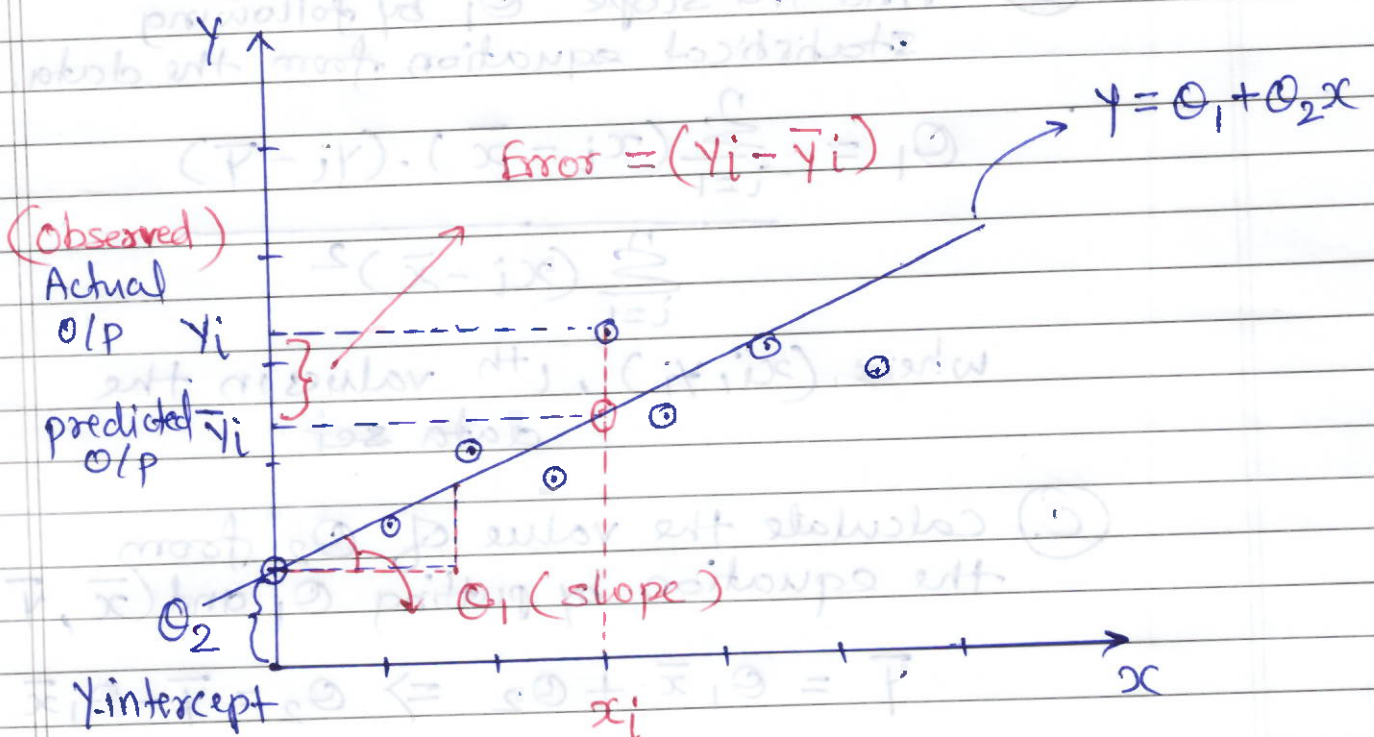 Y
Y = θ₁ + θ₂x
Error = (Yi - Ȳi)
(Observed)
Actual
O/P Yi
predicted Ȳi
O/P
θ₁ (slope)
θ₂
Y-intercept
xi
x